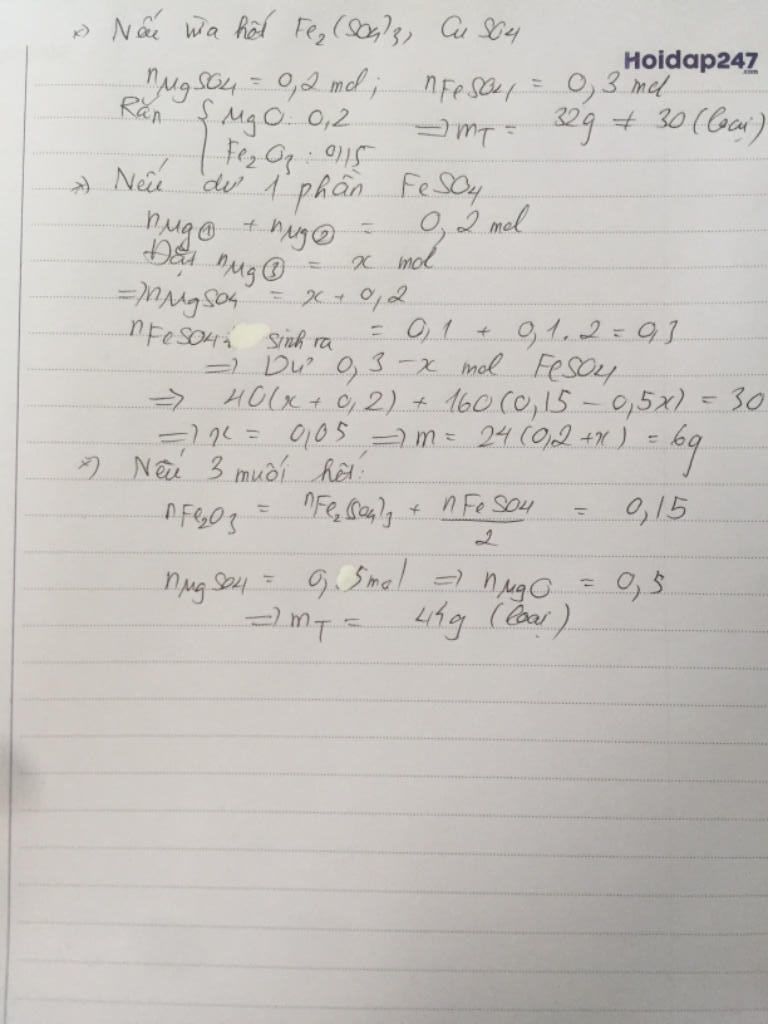 *) Nếu vừa hết Fe₂(SO₄)₃, CuSO₄
Hoidap247.com
nMgSO₄ = 0,2 mol; nFeSO₄ = 0,3 mol
Rắn { MgO: 0,2 => mT = 32g ≠ 30 (loại)
Fe₂O₃: 0,15
*) Nếu dư 1 phần FeSO₄
nMg① + nMg② = 0,2 mol
Đặt nMg③ = x mol
=> nMgSO₄ = x + 0,2
nFeSO₄ sinh ra = 0,1 + 0,1.2 = 0,3
=> Dư 0,3 - x mol FeSO₄
=> 40(x + 0,2) + 160(0,15 - 0,5x) = 30
=> x = 0,05 => m = 24(0,2 + x) = 6g
*) Nếu 3 muối hết:
nFe₂O₃ = nFe₂(SO₄)₃ + nFeSO₄/2 = 0,15
nMgSO₄ = 0,5 mol => nMgO = 0,5
=> mT = 44g (loại)